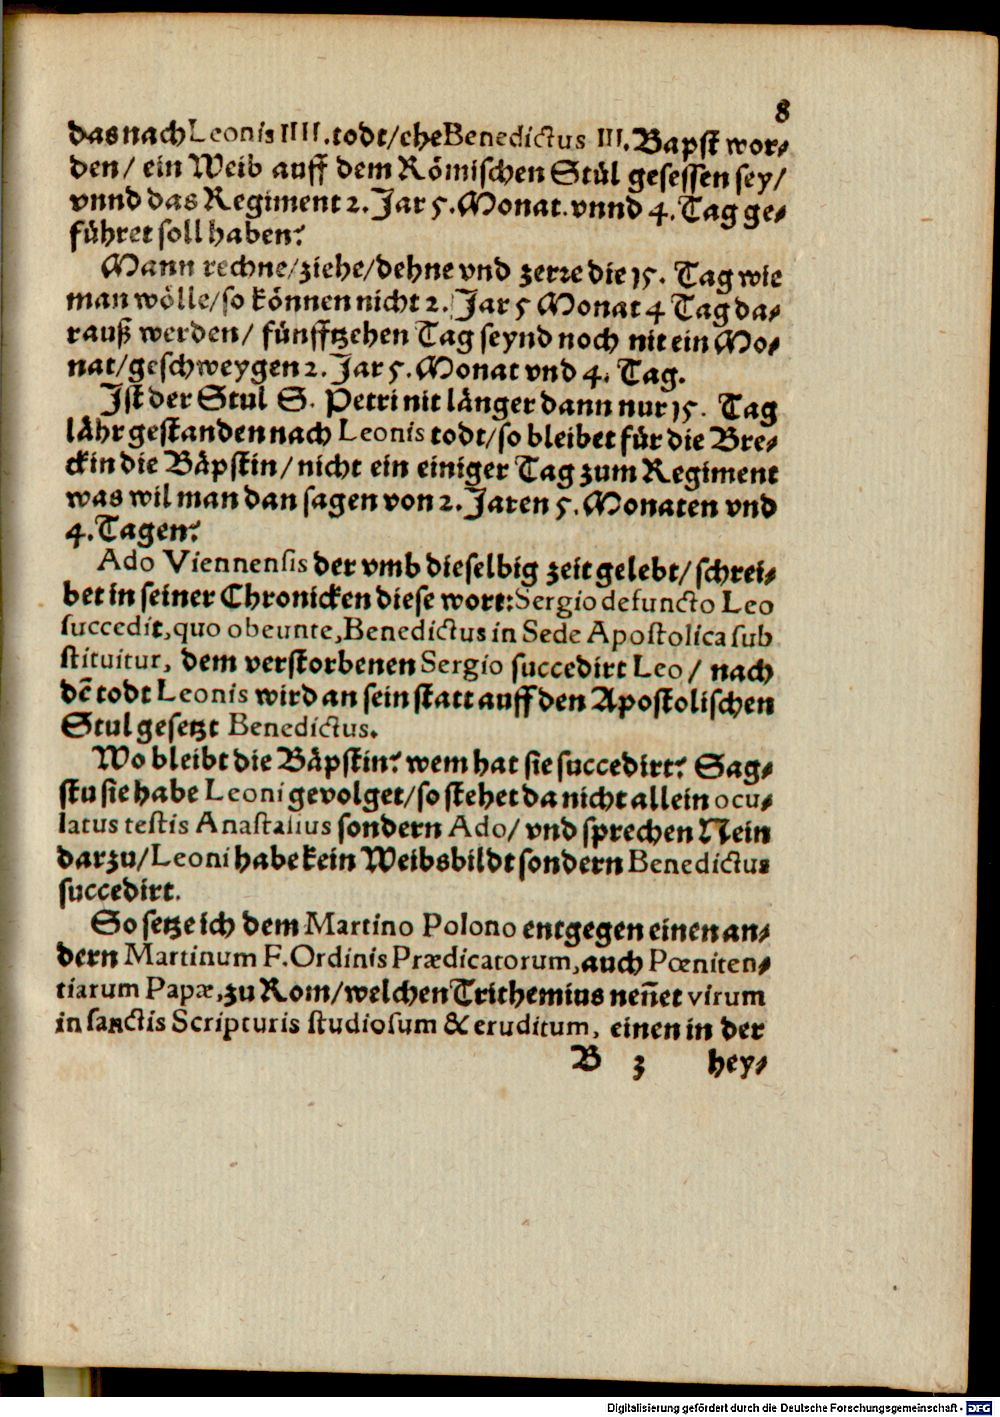 8
das nach Leonis IIII. todt/ ehe Benedictus III. Bapst wor⸗
den/ ein Weib auff dem Römischen Stůl gesessen sey/
vnnd das Regiment 2. Jar 5. Monat. vnnd 4. Tag ge⸗
führet soll haben?
Mann rechne/ziehe/dehne vnd zerre die 15. Tag wie
man wölle/so können nicht 2. Jar 5 Monat 4 Tag da⸗
rauß werden/ fünfftzehen Tag seynd noch nit ein Mo⸗
nat/geschweygen 2. Jar 5. Monat vnd 4. Tag.
Ist der Stul S. Petri nit länger dann nur 15. Tag
lähr gestanden nach Leonis todt/so bleibet für die Bre⸗
ckin die Bäpstin/ nicht ein einiger Tag zum Regiment
was wil man dan sagen von 2. Jaren 5. Monaten vnd
4. Tagen?
Ado Viennensis der vmb dieselbig zeit gelebt/ schrei⸗
bet in seiner Chronicken diese wort: Sergio defuncto Leo
succedit, quo obeunte, Benedictus in Sede Apostolica sub
stituitur, dem verstorbenen Sergio succedirt Leo/ nach
dē todt Leonis wird an sein statt auff den Apostolischen
Stul gesetzt Benedictus.
Wo bleibt die Bäpstin? wem hat sie succedirt? Sag⸗
stu sie habe Leoni gevolget/so stehet da nicht allein ocu⸗
latus testis Anastasius sondern Ado/ vnd sprechen Nein
darzu/ Leoni habe kein Weibsbildt sondern Benedictus
succedirt.
So setze ich dem Martino Polono entgegen einen an⸗
dern Martinum F. Ordinis Prædicatorum, auch Pœniten⸗
tiarum Papæ, zu Rom/welchen Trithemius neñet virum
in sanctis Scripturis studiosum & eruditum, einen in der
B 3 hey⸗
Digitalisierung gefördert durch die Deutsche Forschungsgemeinschaft - DFG